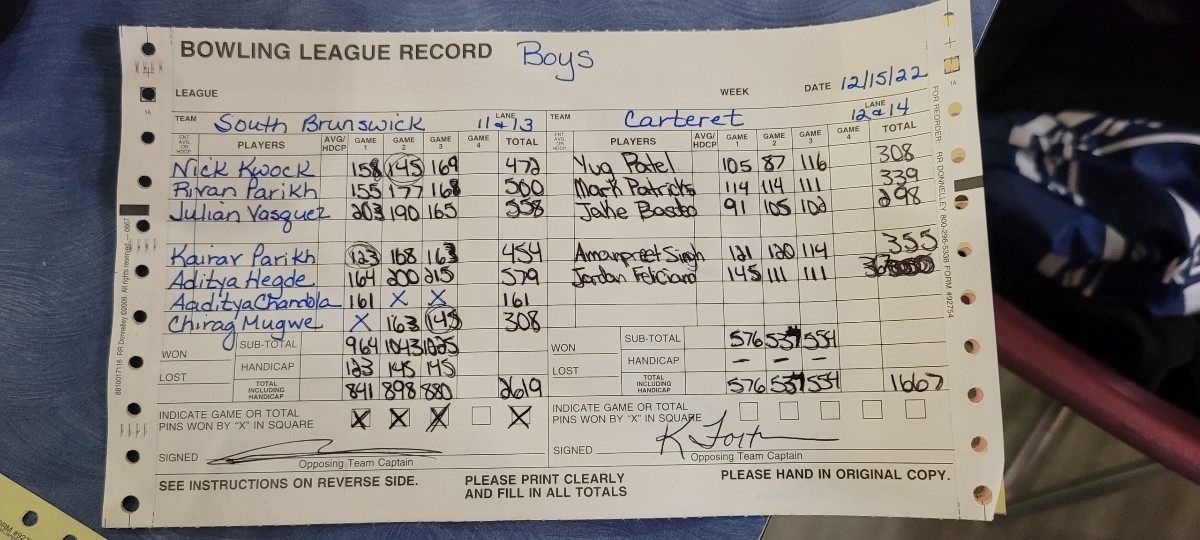 BOWLING LEAGUE RECORD Boys
LEAGUE WEEK DATE 12/15/22
TEAM South Brunswick LANE 11 & 13 TEAM Carteret LANE 12 & 14
ENT. AVG. OR HDCP. PLAYERS AVG/HDCP GAME 1 GAME 2 GAME 3 GAME 4 TOTAL ENT. AVG. OR HDCP. PLAYERS AVG/HDCP GAME 1 GAME 2 GAME 3 GAME 4 TOTAL
Nick Kwock 158 145 169 472 Yug Patel 105 87 116 308
Rivan Parikh 155 177 168 500 Mark Patricks 114 114 111 339
Julian Vasquez 203 190 165 558 Jake 91 105 102 298
Kairav Parikh 123 168 163 454 Amanpreet Singh 121 120 114 355
Aditya Hegde 164 200 215 579 Jordan Feliciano 145 111 111
Aaditya Chandola 161 X X 161
Chirag Mugwe X 163 145 308
WON SUB-TOTAL 964 1043 1025 WON SUB-TOTAL 576 537 554
LOST HANDICAP 123 145 145 LOST HANDICAP - - -
TOTAL INCLUDING HANDICAP 841 898 880 2619 TOTAL INCLUDING HANDICAP 576 537 554 1667
INDICATE GAME OR TOTAL PINS WON BY "X" IN SQUARE X X X X INDICATE GAME OR TOTAL PINS WON BY "X" IN SQUARE
SIGNED SIGNED
Opposing Team Captain Opposing Team Captain
SEE INSTRUCTIONS ON REVERSE SIDE. PLEASE PRINT CLEARLY AND FILL IN ALL TOTALS PLEASE HAND IN ORIGINAL COPY.
8810017116 RR Donnelley ©2009. All rights reserved. — 0667
FOR REORDER: RR DONNELLEY 800-296-5338 FORM #92754